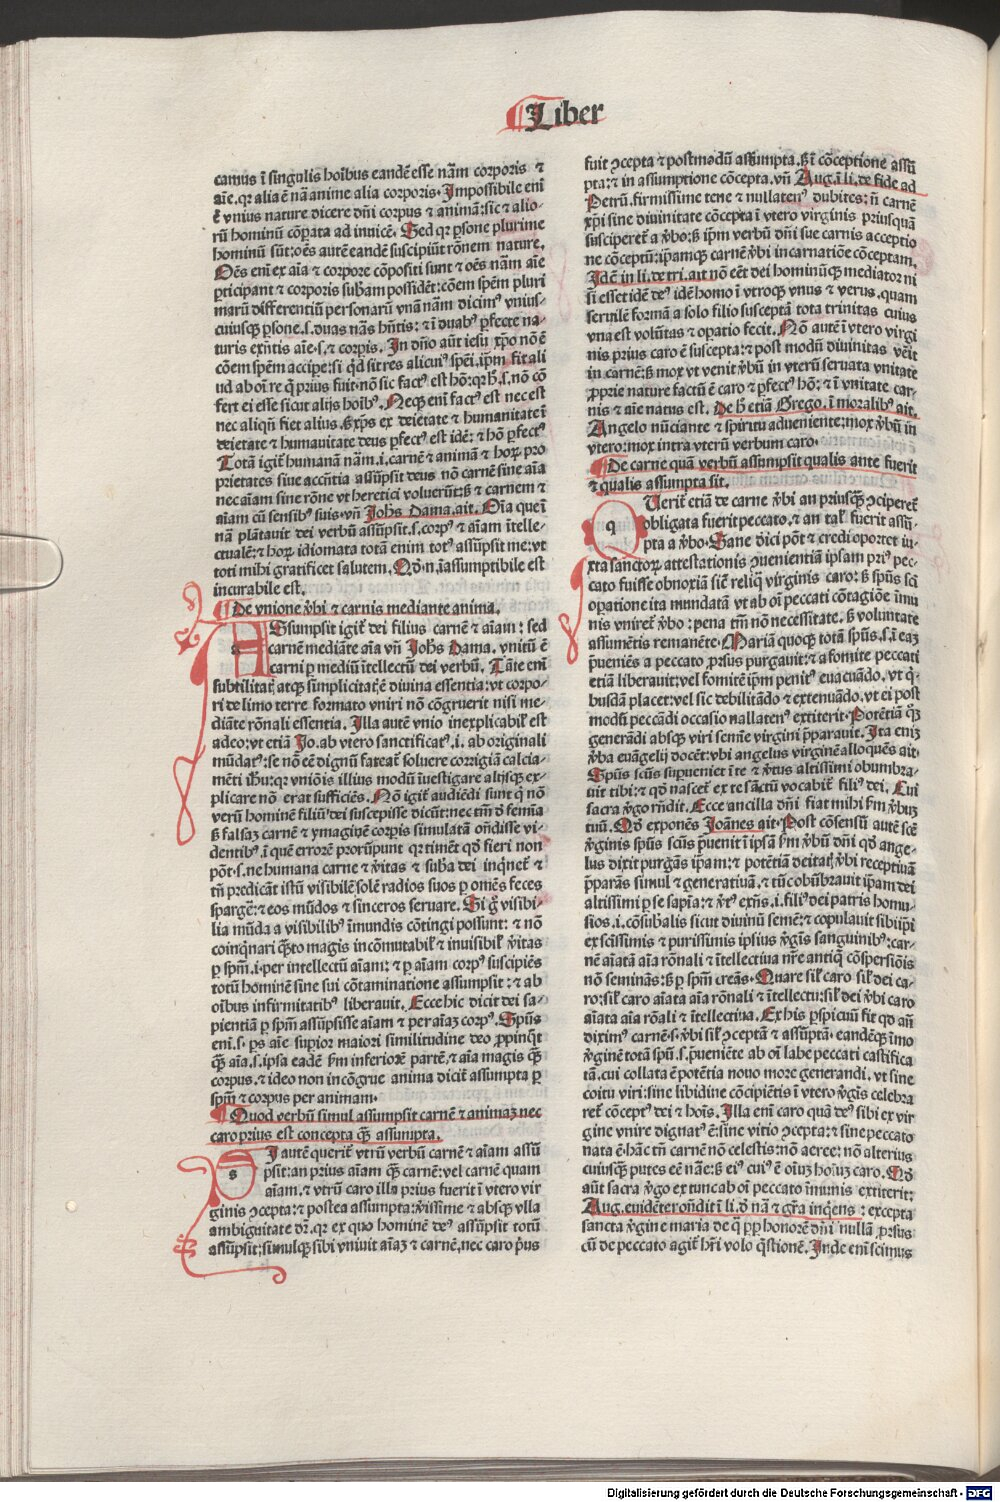 Liber
camus ī singulis hoībus eandē esse nām̄ corporis ⁊
aīe.qꝛ alia ē nā anime alia corporis. Impossibile enī
ē vnius nature dicere dn̄i corpus ⁊ animā: sic ⁊ alio-
rū hominū cōꝑata ad inuicē. Sed qꝛ ꝑsone plurime
hominū sūt: oēs autē eandē suscipiūt rōnem nature.
Oēs enī ex aīa ⁊ corpore cōpositi sunt ⁊ oēs nām aīe
ꝑticipant ⁊ corporis subām possidēt: cōem spēm pluri
marū differentiū personarū vnā nām dicimꝰ vnius-
cuiusqꝫ ꝑsone.s.duas nās hn̄tis: ⁊ ī duabꝰ ꝑfecte na-
turis exn̄tis aīe.s.⁊ corpis. In dn̄o aūt iesu xp̄o nō ē
cōem spēm accipe: si qd̓ sit res alicuiꝰ spēi. ip̄m fit ali
ud ab oī re qd̓ prius fuit. nō sic factꝰ est hō: qꝛ h̓.s.nō cō
fert ei esse sicut alijs hoībꝰ. Neqꝫ enī factꝰ est nec est
nec aliqn̄ fiet alius. ß xp̄s ex deietate ⁊ humanitate ī
deietate ⁊ humanitate deus ꝑfectꝰ est idē: ⁊ hō ꝑfectꝰ
Totā igit̄ humanā nām.i.carnē ⁊ animā ⁊ hoꝝ pro
prietates siue accn̄tia assūpsit deus nō carnē sine aīa
nec aīam sine rōne vt heretici voluerūt: ß ⁊ carnem ⁊
aīam cū sensibꝰ suis. vn̄ Johs Dama.ait. Oīa que ī
nā plātauit dei verbū assūpsit.s.corpꝰ ⁊ aīam ītelle-
ctualē: ⁊ hoꝝ idiomata totā enim totꝰ assūpsit me: vt
toti mihi gratificet salutem. Qd̓.n.īassumptibile est
incurabile est.
De vnione v̓bi ⁊ carnis mediante anima.
ASsumpsit igit̄ dei filius carnē ⁊ aīam: sed
carnē mediāte aīa vn̄ Johs Dama. vnitū ē
carni ꝑ mediū ītellectū dei verbū. Tāte enī
subtilitat̄ atqꝫ simplicitat̄ ē divina essentia: vt corpo-
ri de limo terre formato vniri nō cōgruerit nisi me-
diāte rōnali essentia. Illa autē vnio inexplicabił est
adeo: vt etiā Jo.ab vtero sanctificatꝰ.i.ab originali
mūdatꝰ: se nō eē dignū fateat̄ soluere corrigiā calcia-
mēti ihu: qꝛ vniōis illius modū īuestigare alijsqꝫ ex-
plicare nō erat sufficiēs. Nō igit̄ audiēdi sunt q̄ nō
verū hominē filiū dei suscepisse dicūt: nec tm̄ d̓ femīa
ß falsaꝫ carnē ⁊ ymaginē corpis simulatā on̄disse vi-
dentibꝰ.ī quē errorē prorūpunt qꝛ timēt qd̓ fieri non
pōt.s.ne humana carne ⁊ v̓itas ⁊ subā dei inqnet̄ ⁊
tn̄ predicāt istū visibilē solē radios suos ꝑ omēs feces
spargē: ⁊ eos mūdos ⁊ sinceros seruare. Si gͦ visibi-
lia mūda a visibilibꝰ imundis cōtingi possunt: ⁊ nō
coinqnari qͣto magis incōmutabił ⁊ inuisibił v̓itas
ꝑ spm̄.i.per intellectū aīam: ⁊ ꝑ aīam corpꝰ suscipiēs
totū hominē sine sui cōtaminatione assumpsit: ⁊ ab
oībus infirmitatibꝰ liberauit. Ecce hic dicit dei sa-
pientiā ꝑ spm̄ assūpsisse aīam ⁊ per aīaꝫ corpꝰ. Spūs
enī.s.ps aīe supior maiori similitudine deo ꝓpinqt
qͣꝫ aīa.s.ipsa eadē ßm inferiorē partē.⁊ aīa magis qͣꝫ
corpus.⁊ ideo non incōgrue anima dicit̄ assumpta ꝑ
spm̄ ⁊ corpus per animam.
Quod verbū simul assumpsit carnē ⁊ animaꝫ nec
caro prius est concepta qͣꝫ assumpta.
SI autē querit̄ vtrū verbū carnē ⁊ aīam assū
psit: an prius aīam qͣꝫ carnē: vel carnē quam
aīam.⁊ vtrū caro illa prius fuerit ī vtero vir
ginis ꝯcepta: ⁊ postea assumpta: v̓issime ⁊ absqꝫ vlla
ambiguitate dr̄.qꝛ ex quo hominē deꝰ assūpsit totū
assūpsit: simulqꝫ sibi vniuit aīaꝫ ⁊ carnē.nec caro p̓us
fuit ꝯcepta ⁊ postmodū assumpta. ß ī cōceptione assū
pta: ⁊ in assumptione cōcepta. vn̄ Aug.i li.de fide ad
Petrū. firmissime tene ⁊ nullatenꝰ dubites: n̄ carnē
xp̄i sine diuinitate cōcepta ī vtero virginis priusquā
susciperet̄ a v̓bo: ß ip̄m verbū dn̄i sue carnis acceptio
ne cōceptū: ip̄amqꝫ carnē v̓bi in carnatiōe cōceptam.
Idē in li.de tri.ait nō eēt dei hominūqꝫ mediator ni
si esset idē deꝰ idē homo ī vtroqꝫ vnus ⁊ verus. quam
seruilē formā a solo filio susceptā tota trinitas cuius
vna est volūtas ⁊ opatio fecit. Nō autē ī vtero virgi
nis prius caro ē suscepta: ⁊ post modū diuinitas vēit
in carnē: ß mox vt venit v̓bū in vterū seruata vnitate
ꝓprie nature factū ē caro ⁊ ꝑfectꝰ hō: ⁊ ī vnitate car-
nis ⁊ aīe natus est. De h̓ etiā Grego.ī moralibꝰ ait.
Angelo nūciante ⁊ spiritu adueniente: mox v̓bū in
vtero: mox intra vterū verbum caro.
De carne quā verbū assumpsit qualis ante fuerit
⁊ qualis assumpta sit.
QUerit̄ etiā de carne v̓bi an priusqͣꝫ ꝯciperet̄
obligata fuerit peccato.⁊ an tał fuerit assū-
pta a v̓bo. Sane dici pōt ⁊ credi oportet iu-
xta sanctoꝝ attestationis ꝯuenientiā ipsam priꝰ pec-
cato fuisse obnoxiā siē reliq̄ virginis caro: ß spūs sci
opatione ita mundatā vt ab oī peccati cōtagiōe īmu
nis vniret̄ v̓bo: pena tm̄ nō necessitate. ß voluntate
assumētis remanēte. Mariā quoqꝫ totā spūs.s.ī eaꝫ
p̄ueniēs a peccato ꝓrsus purgauit: ⁊ a fomite peccati
etiā liberauit: vel fomitē ip̄m penitꝰ euacuādo. vt q̓-
busdā placet: vel sic debilitādo ⁊ extenuādo. vt ei post
modū peccādi occasio nullatenꝰ extiterit. Potētiā qꝫ
generādi absqꝫ viri semīe virgini p̄parauit. Ita eniꝫ
v̓ba euāgelij docēt: vbi angelus virginē alloquēs ait
Spūs scūs supueniet ī te ⁊ v̓tus altissimi obumbra-
uit tibi: ⁊ qd̓ nascet̄ ex te sāctū vocabit̄ filiꝰ dei. Cui
sacra v̓go rn̄dit. Ecce ancilla dn̄i fiat mihi ßm v̓buꝫ
tuū. Qd̓ exponēs Joānes ait. Post cōsensū autē scē
v̓ginis spūs scūs p̄uenit ī ipsā ßm v̓bū dn̄i qd̓ ange-
lus dixit purgās ip̄am: ⁊ potētiā deitat̄ v̓bi receptiuā
p̄parās simul ⁊ generatiuā.⁊ tūc obūbrauit ip̄am dei
altissimi ꝑ se sapīa: ⁊ v̓tꝰ exn̄s.i.filiꝰ dei patris homu-
sios.i.cōsubālis sicut diuinū semē: ⁊ copulauit sibiip̄i
ex sc̄issimis ⁊ purissimis ipsius v̓gīs sanguinibꝰ: car-
nē aīatā aīa rōnali ⁊ ītellectiua nr̄e antiq̄ cōspersiōis
nō seminās: ß ꝑ spm̄ creās. Quare sił caro sił dei ca-
ro: sił caro aīata aīa rōnali ⁊ ītellectu: sił dei v̓bi caro
aīata aīa rōali ⁊ ītellectiua. Ex his ꝑspicuū fit qd̓ an̄
diximꝰ carnē.s.v̓bi sił ꝯceptā ⁊ assūptā. eandēqꝫ īmo
v̓ginē totā spū.s.p̄ueniēte ab oī labe peccati castifica
tā. cui collata ē potētia nouo more generandi. vt sine
coitu viri: sine libidine cōcipiētis ī vtero v̓gīs celebra
ret̄ cōceptꝰ dei ⁊ hoīs. Illa enī caro quā deꝰ sibi ex vir
gine vnire dignatꝰ ē: sine vitio ꝯcepta: ⁊ sine peccato
nata ē. hāc tn̄ carnē nō celestis: nō aeree: nō alterius
cuiusqꝫ putes eē nāe: ß eiꝰ cuiꝰ ē oīuꝫ hoīuꝫ caro. Qd̓
aūt sacra v̓go ex tunc ab oī peccato īmunis extiterit:
Aug.euidēter on̄dit ī li.d̓ nā ⁊ grā inqēns: excepta
sancta v̓gine maria de q̄ ꝓpꝑ honorē dn̄i nullā ꝓrsus
cū de peccato agit̄ hr̄i volo q̄stionē. Inde enī scimus
Digitalisierung gefördert durch die Deutsche Forschungsgemeinschaft - DFG